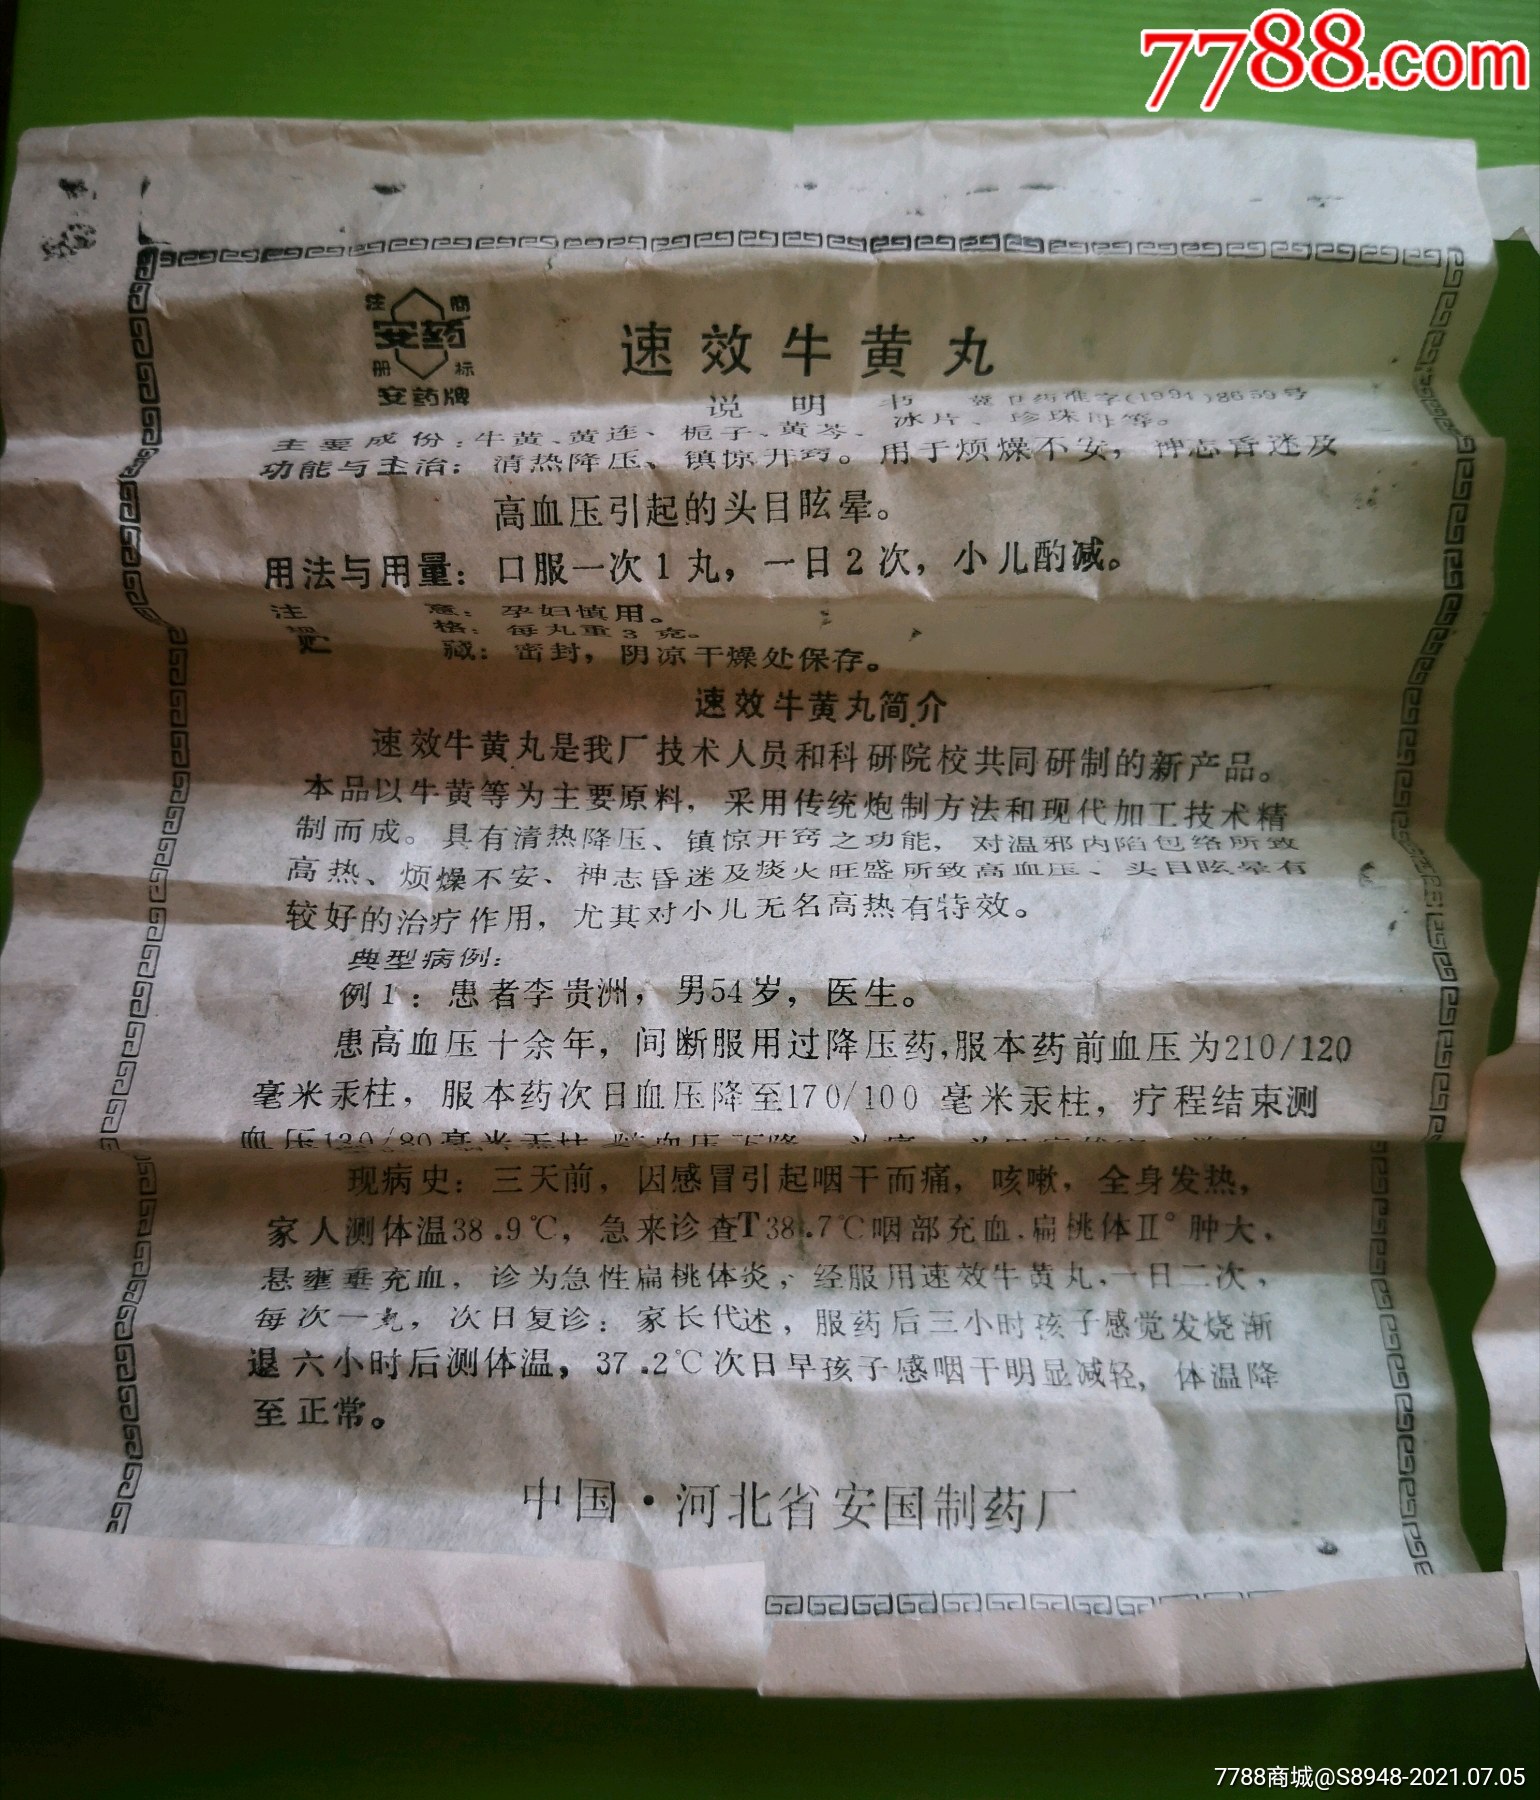 7788.com
注 商
安药
册 标
安药牌
速效牛黄丸
说明书 冀卫药准字(1994)8659号
主要成份：牛黄、黄连、栀子、黄芩、冰片、珍珠母等。
功能与主治：清热降压、镇惊开窍。用于烦燥不安，神志昏迷及
高血压引起的头目眩晕。
用法与用量：口服一次1丸，一日2次，小儿酌减。
注 意：孕妇慎用。
格：每丸重3克。
贮 藏：密封，阴凉干燥处保存。
速效牛黄丸简介
速效牛黄丸是我厂技术人员和科研院校共同研制的新产品。
本品以牛黄等为主要原料，采用传统炮制方法和现代加工技术精
制而成。具有清热降压、镇惊开窍之功能，对温邪内陷包络所致
高热、烦燥不安、神志昏迷及痰火旺盛所致高血压、头目眩晕有
较好的治疗作用，尤其对小儿无名高热有特效。
典型病例：
例1：患者李贵洲，男54岁，医生。
患高血压十余年，间断服用过降压药，服本药前血压为210/120
毫米汞柱，服本药次日血压降至170/100毫米汞柱，疗程结束测
血压130/80毫米汞柱
现病史：三天前，因感冒引起咽干而痛，咳嗽，全身发热，
家人测体温38.9℃，急来诊查T38.7℃咽部充血.扁桃体Ⅱ°肿大，
悬雍垂充血，诊为急性扁桃体炎，经服用速效牛黄丸，一日二次，
每次一丸，次日复诊：家长代述，服药后三小时孩子感觉发烧渐
退六小时后测体温，37.2℃次日早孩子感咽干明显减轻，体温降
至正常。
中国·河北省安国制药厂
7788商城@S8948-2021.07.05